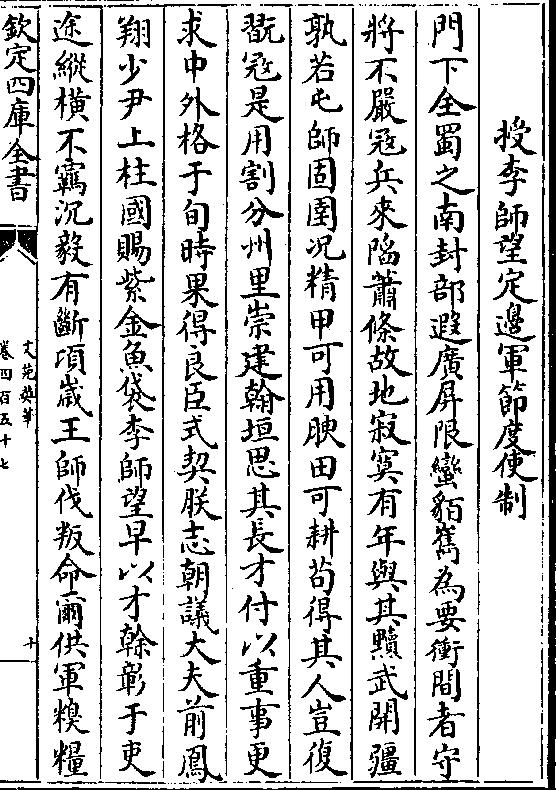 授李師望定邊軍節度使制
門下全蜀之南封部遐廣屏限蠻貊舊為要衝間者守
將不嚴冦兵來陷蕭條故地寂寞有年與其黷武開疆
孰若屯師固圉况精甲可用腴田可耕苟得其人豈復
翫冦是用割分州里崇建翰垣思其長才付以重事更
求中外格于旬時果得良臣式契朕志朝議大夫前鳳
翔少尹上柱國賜紫金魚袋李師望早以才幹彰于吏
途縱横不羈沉毅有斷項嵗王師伐叛命爾供軍糗糧
欽定四庫全書
文苑英華
卷四百五十七
十